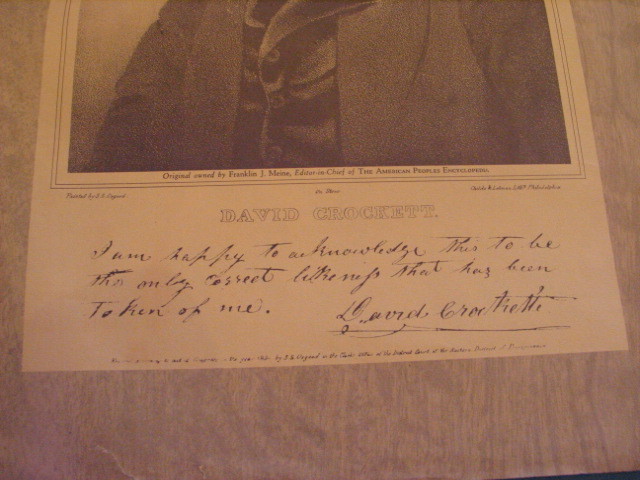 Original owned by Franklin J. Meine, Editor-in-Chief of THE AMERICAN PEOPLES ENCYCLOPEDIA.
Painted by S.S. Osgood. On Stone Childs & Lehman, Lith. Philadelphia.
DAVID CROCKETT.
I am happy to acknowledge this to be
the only correct likeness that has been
taken of me. David Crockett
by S.S. Osgood in the Clerks Office of the District Court of the Eastern District of Pennsylvania